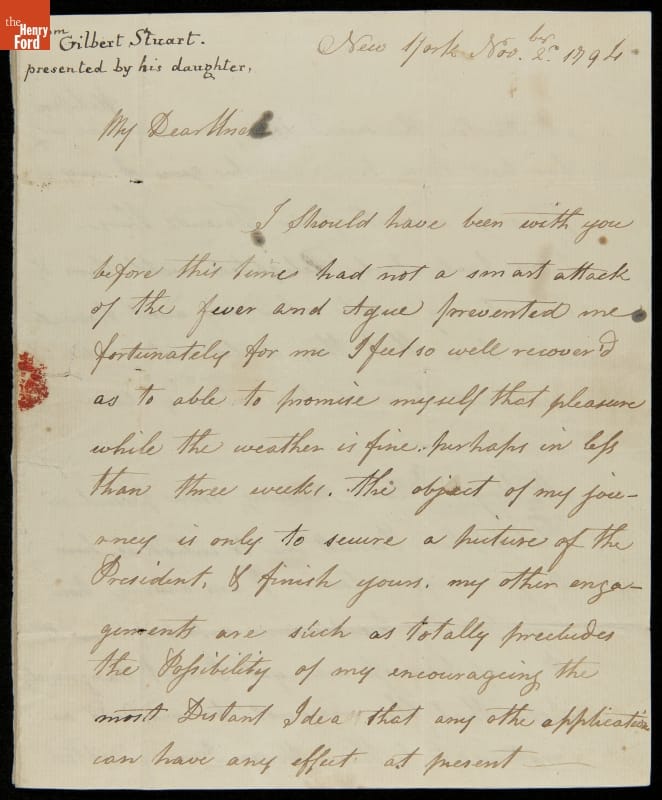 the
Henry
Ford
From
Gilbert Stuart.
presented by his daughter,
New York Nov.br 2d. 1794
My Dear Uncle
I Should have been with you
before this time had not a smart attack
of the fever and Ague prevented me
fortunately for me I feel so well recover'd
as to able to promise myself that pleasure
while the weather is fine. perhaps in less
than three weeks. The object of my jou-
rney is only to secure a picture of the
President, & finish yours. my other enga-
gements are such as totally precludes
the Possibility of my encourageing the
most Distant Idea that any othe application
can have any effect at present